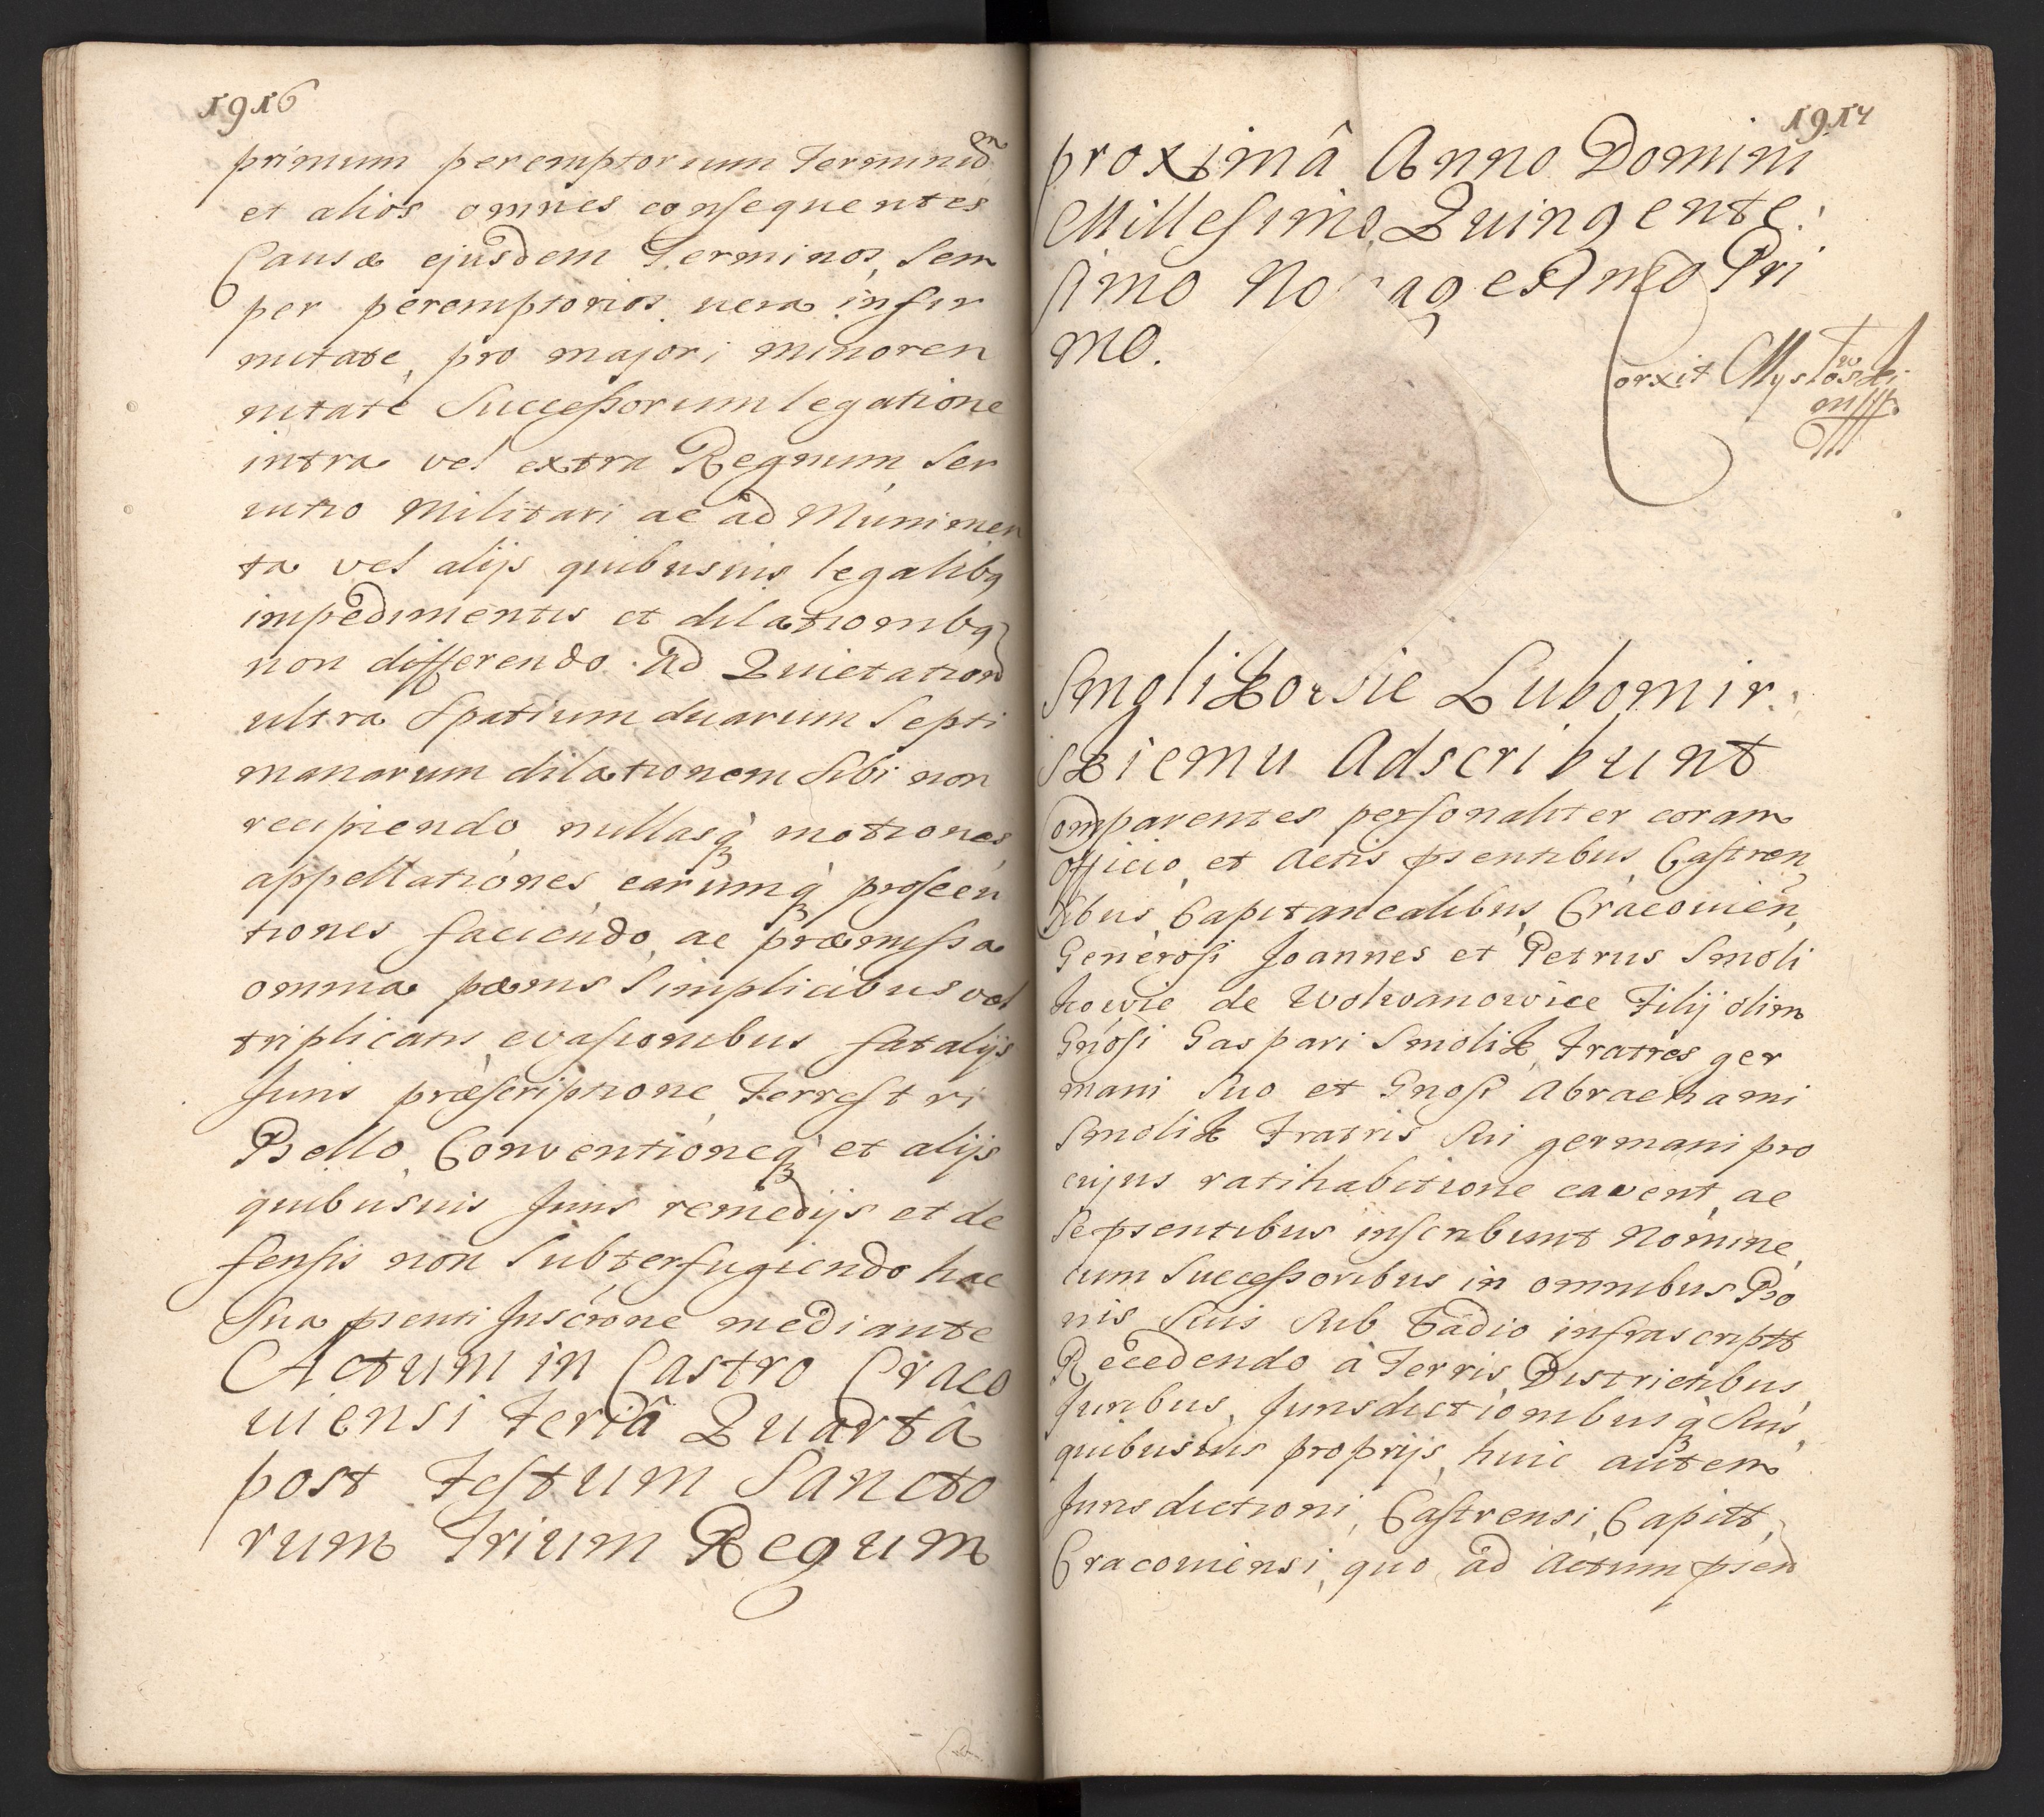 1916
primum peremptorium Terminũ
et alios omnes consequentes
Causæ ejusdem Terminos, Sem
per peremptorios vera infir
mitate, pro majori minoren
nitate Successorum legatione
intra vel extra Regnum, Ser
vitio Militari ac ad Munimen
ta vel alijs quibusvis legalibq
impedimentis et dilationibq
non differendo. Ad Quietation
ultra Spatium duarum Septi
manarum dilationem Sibi non
recipiendo, nullasq̀ motiones,
appellationes, earumq̀ prosecu
tiones faciendo, ac præmissa
omnia pœnis Simplicibus vel
triplicatis evasionibus fatalijs
Juris præscriptione, Terrestri
Bello, Conventioneq̀ et alijs
quibusvis Juris remedijs et de
fensis non Subterfugiendo hac
Sua pñenti Inscrone mediante
Actum in Castro Craco
viensi Feriâ Quartâ
post Festum Sancto
rum Trium Regum
1917
proximâ Anno Domini
Millesimo Quingente:
simo No agesimo Pri
mo.
orxit
mpp
Smolikowie Lubomir:
skiemu Adscribunt
Comparentes personaliter coram
officio, et Actis pñentibus, Castren
sibus, Capitanealibus, Cracovien,
Generosi Joannes et Petrus Smoli
kowie de Wolwanowice Filij olim
Gñosi Gaspari Smolik, Fratres ger
mani Suo et Gnosi Abrachami
Smolik Fratris Sui germani pro
cujus ratihabitione cavent, ac
Se pñentibus inscribunt Nomine,
cum Successoribus in omnibus Bo
nis Suis Sub Vadio infrascriptt
Recedendo à Terris, Districtibus,
Juribus, Jurisdictionibusq̀ Suis,
quibusvis proprijs, huic autem
Jurisdictioni, Castrensi, Capitt,
Cracoviensi, quo, ad Actum pñen